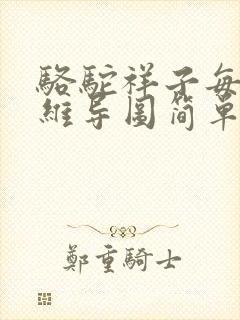 駱駝祥子每
維导圖简單
鄭重騎士